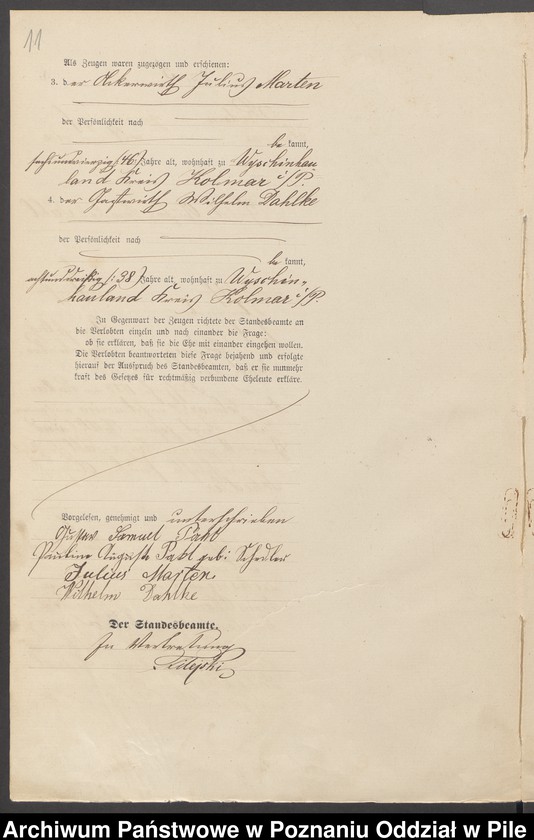 11
Als Zeugen waren zugezogen und erschienen:
3. der Ackerwirth Julius Marten
der Persönlichkeit nach
be kannt,
sechsundvierzig (46) Jahre alt, wohnhaft zu Uyschinhau
land Kreis Kolmar i/P.
4. der Gastwirth Wilhelm Dahlke
der Persönlichkeit nach
be kannt,
achtunddreißig (: 38) Jahre alt, wohnhaft zu Uyschin-
hauland Kreis Kolmar i/P.
In Gegenwart der Zeugen richtete der Standesbeamte an
die Verlobten einzeln und nach einander die Frage:
ob sie erklären, daß sie die Ehe mit einander eingehen wollen.
Die Verlobten beantworteten diese Frage bejahend und erfolgte
hierauf der Ausspruch des Standesbeamten, daß er sie nunmehr
kraft des Gesetzes für rechtmäßig verbundene Eheleute erkläre.
Vorgelesen, genehmigt und unterschrieben
Gustav Samuel Pahl
Pauline Auguste Pahl geb:
Julius Marten
Wilhelm Dahlke
Der Standesbeamte.
In Vertretung
Archiwum Państwowe w Poznaniu Oddział w Pile